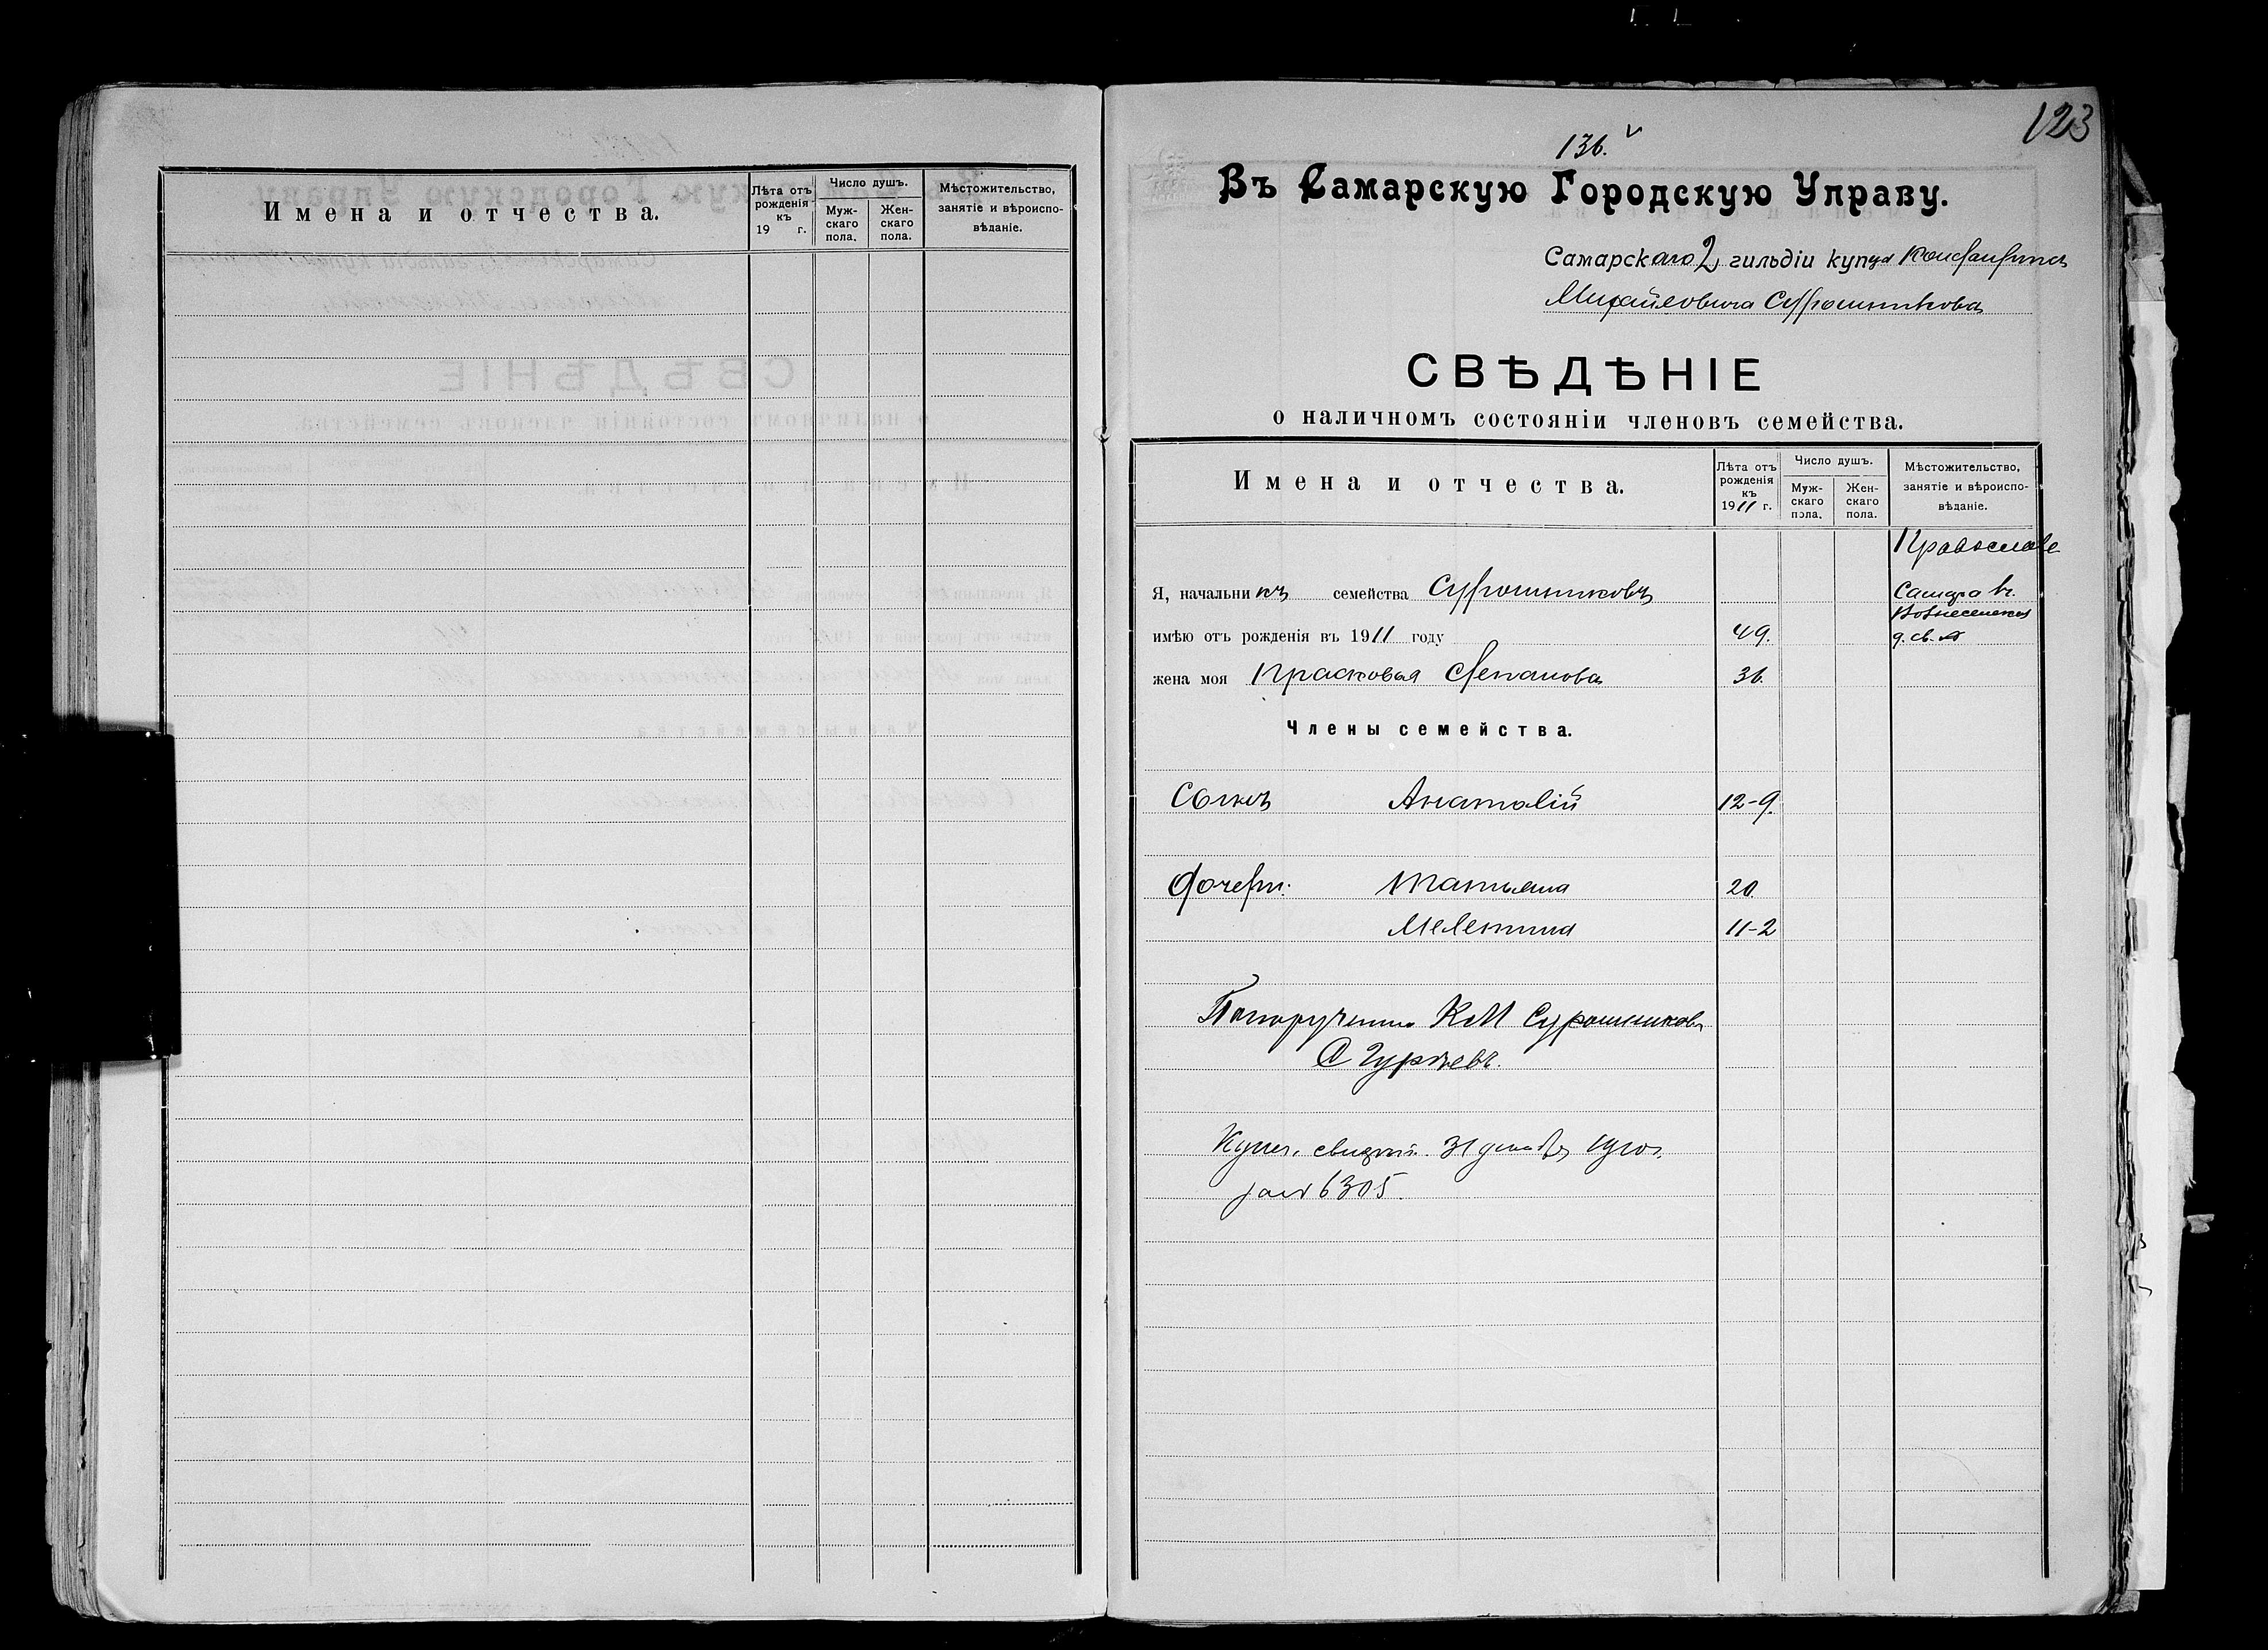 Имена и отчества.
Лѣта отъ рожденія къ 19 г.
Число душъ.
Мужскаго пола.
Женскаго пола.
Мѣстожительство, занятіе и вѣроисповѣданіе.
123
136.
Въ Самарскую Городскую Управу.
Самарскаго 2 гильдіи купца Константина
Михайловича Сурошникова
СВѢДѢНІЕ
о наличномъ состояніи членовъ семейства.
Имена и отчества.
Лѣта отъ рожденія къ 1911 г.
Число душъ.
Мужскаго пола.
Женскаго пола.
Мѣстожительство, занятіе и вѣроисповѣданіе.
Православ
Я, начальникъ семейства Сурошниковъ
Самара
Вознесенская
имѣю отъ рожденія въ 1911 году 49.
д. св.
жена моя Прасковья Степанова 36.
Члены семейства.
Сынъ Анатолій 12-9.
Дочери: Татьяна 20.
Мелетина 11-2
По порученію К М Сурошникова
С Гурьевъ.
Купеч. свидѣт. 31 декабря 1910г.
за № 6305.